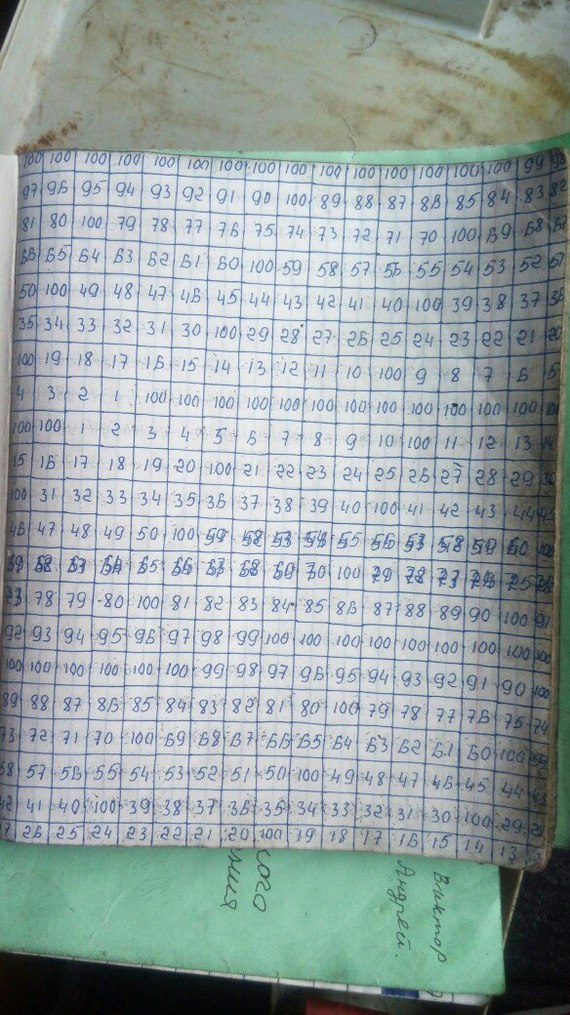 100 100 100 100 100 100 100 100 100 100 100 100 100 100 100 99
97 96 95 94 93 92 91 90 100 89 88 87 86 85 84 83 82
81 80 100 79 78 77 76 75 74 73 72 71 70 100 69 68 67
66 65 64 63 62 61 60 100 59 58 57 56 55 54 53 52 51
50 100 49 48 47 46 45 44 43 42 41 40 100 39 38 37 36
35 34 33 32 31 30 100 29 28 27 26 25 24 23 22 21 20
100 19 18 17 16 15 14 13 12 11 10 100 9 8 7 6 5
4 3 2 1 100 100 100 100 100 100 100 100 100 100 100 100 100
100 100 1 2 3 4 5 6 7 8 9 10 100 11 12 13 14
15 16 17 18 19 20 100 21 22 23 24 25 26 27 28 29 30
100 31 32 33 34 35 36 37 38 39 40 100 41 42 43 44 45
46 47 48 49 50 100 52 53 54 55 56 58 59 60 100
68 67 65 66 68 69 70 100 25
78 79 80 100 81 82 83 84 85 86 87 88 89 90 100 91
92 93 94 95 96 97 98 99 100 100 100 100 100 100 100 100 100
100 100 100 100 100 100 99 98 97 96 95 94 93 92 91 90 100
89 88 87 86 85 84 83 82 81 80 100 79 78 77 76 75 74
73 72 71 70 100 69 68 67 66 65 64 63 62 61 60 100 59
58 57 56 55 54 53 52 51 50 100 49 48 47 46 45 44 43
42 41 40 100 39 38 37 36 35 34 33 32 31 30 100 29 28
26 25 24 23 22 21 20 100 19 18 17 16 15 14 13
сого
Виктор
Андрей.